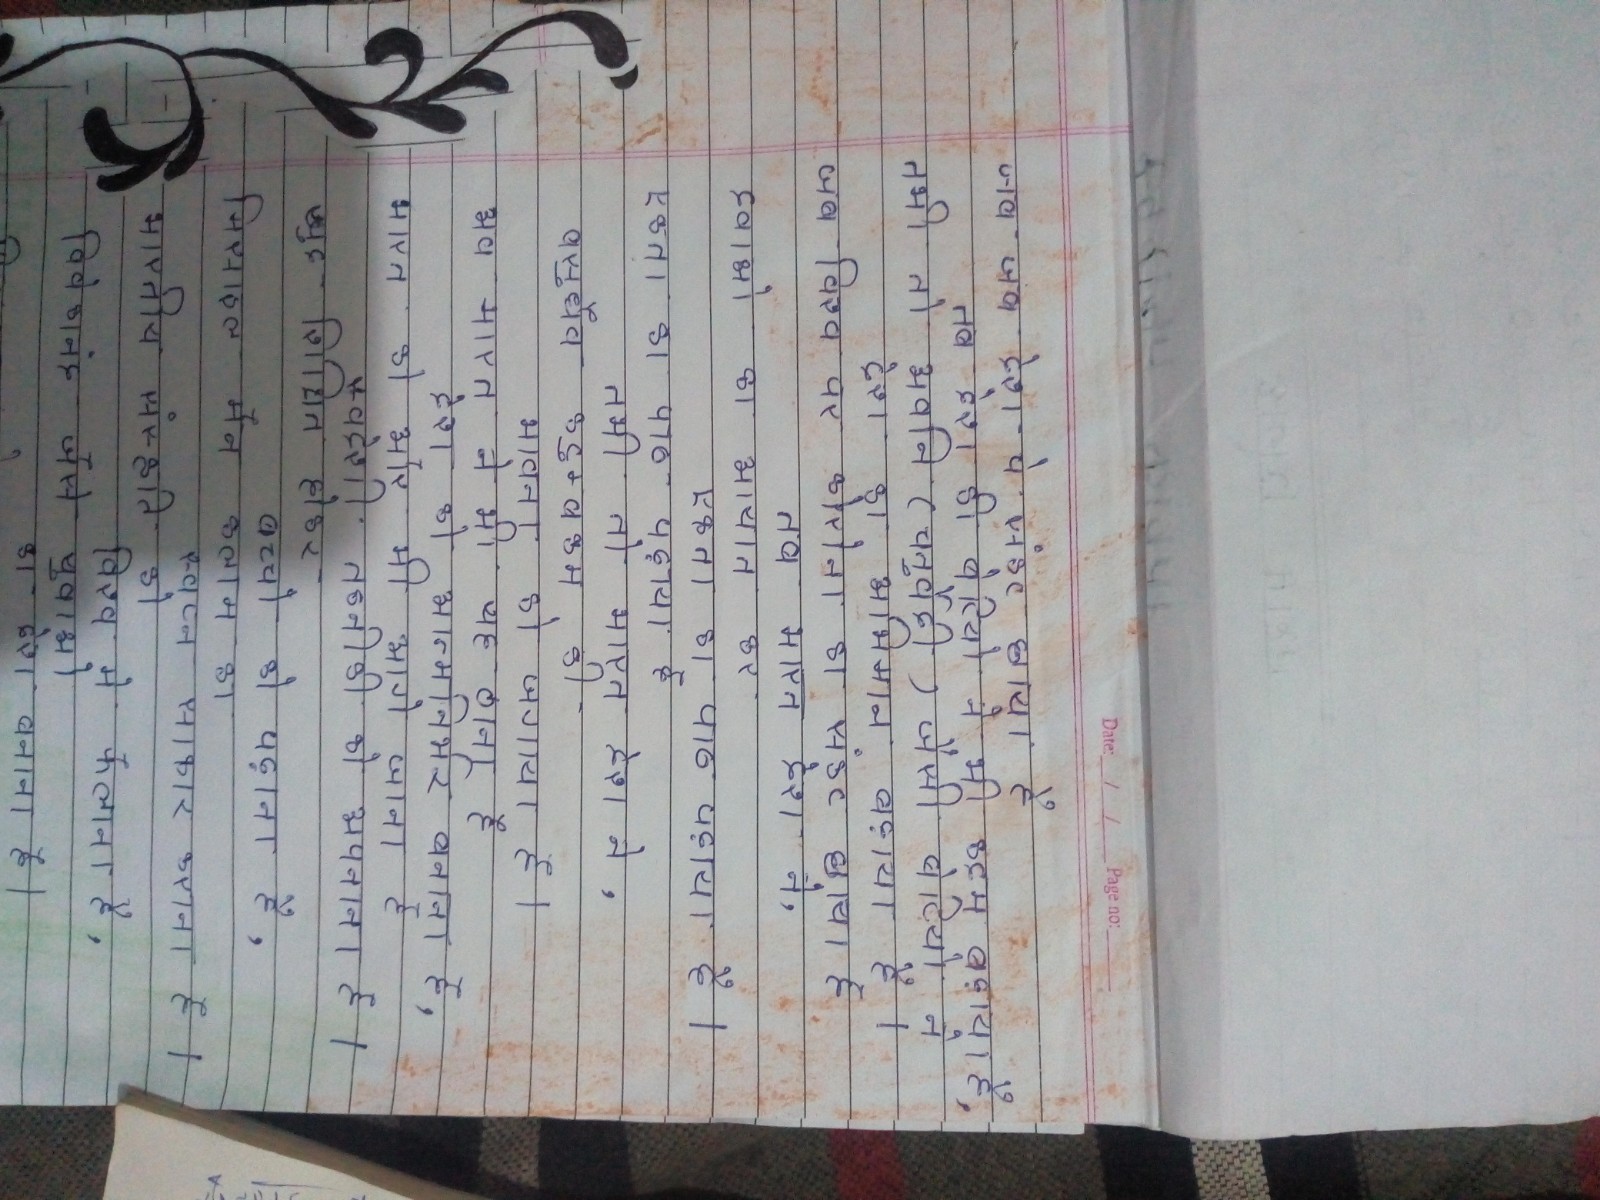 Date: / / Page no:
जब जब देश पे संकट छाया है
तब देश की बेटियों ने भी कदम बढ़ाया है,
तभी तो अवनि (चतुर्वेदी) जैसी बेटियों ने
देश का अभिमान बढ़ाया है ।
जब विश्व पर कोरोना का संकट छाया है
तब भारत देश ने,
दवाओं का आयात कर
एकता का पाठ पढ़ाया है ।
एकता का पाठ पढ़ाया है
तभी तो भारत देश ने,
वसुधैव कुटुम्बकम की
भावना को जगाया है ।
अब भारत ने भी यह ठाना है
देश को आत्मनिर्भर बनाना है,
भारत को और भी आगे जाना है
स्वदेशी तकनीकी को अपनाना है ।
खुद शिक्षित होकर
बच्चो को पढ़ाना है,
मिसाइल मैन कलाम का
स्वप्न साकार कराना है ।
भारतीय संस्कृति को
विश्व में फैलाना है,
विवेकानंद जैसे युवाओं
का देश बनाना है ।